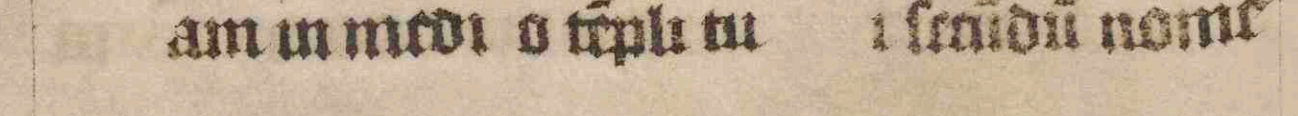 am in medi o te̅pli tu i scd̅m nome